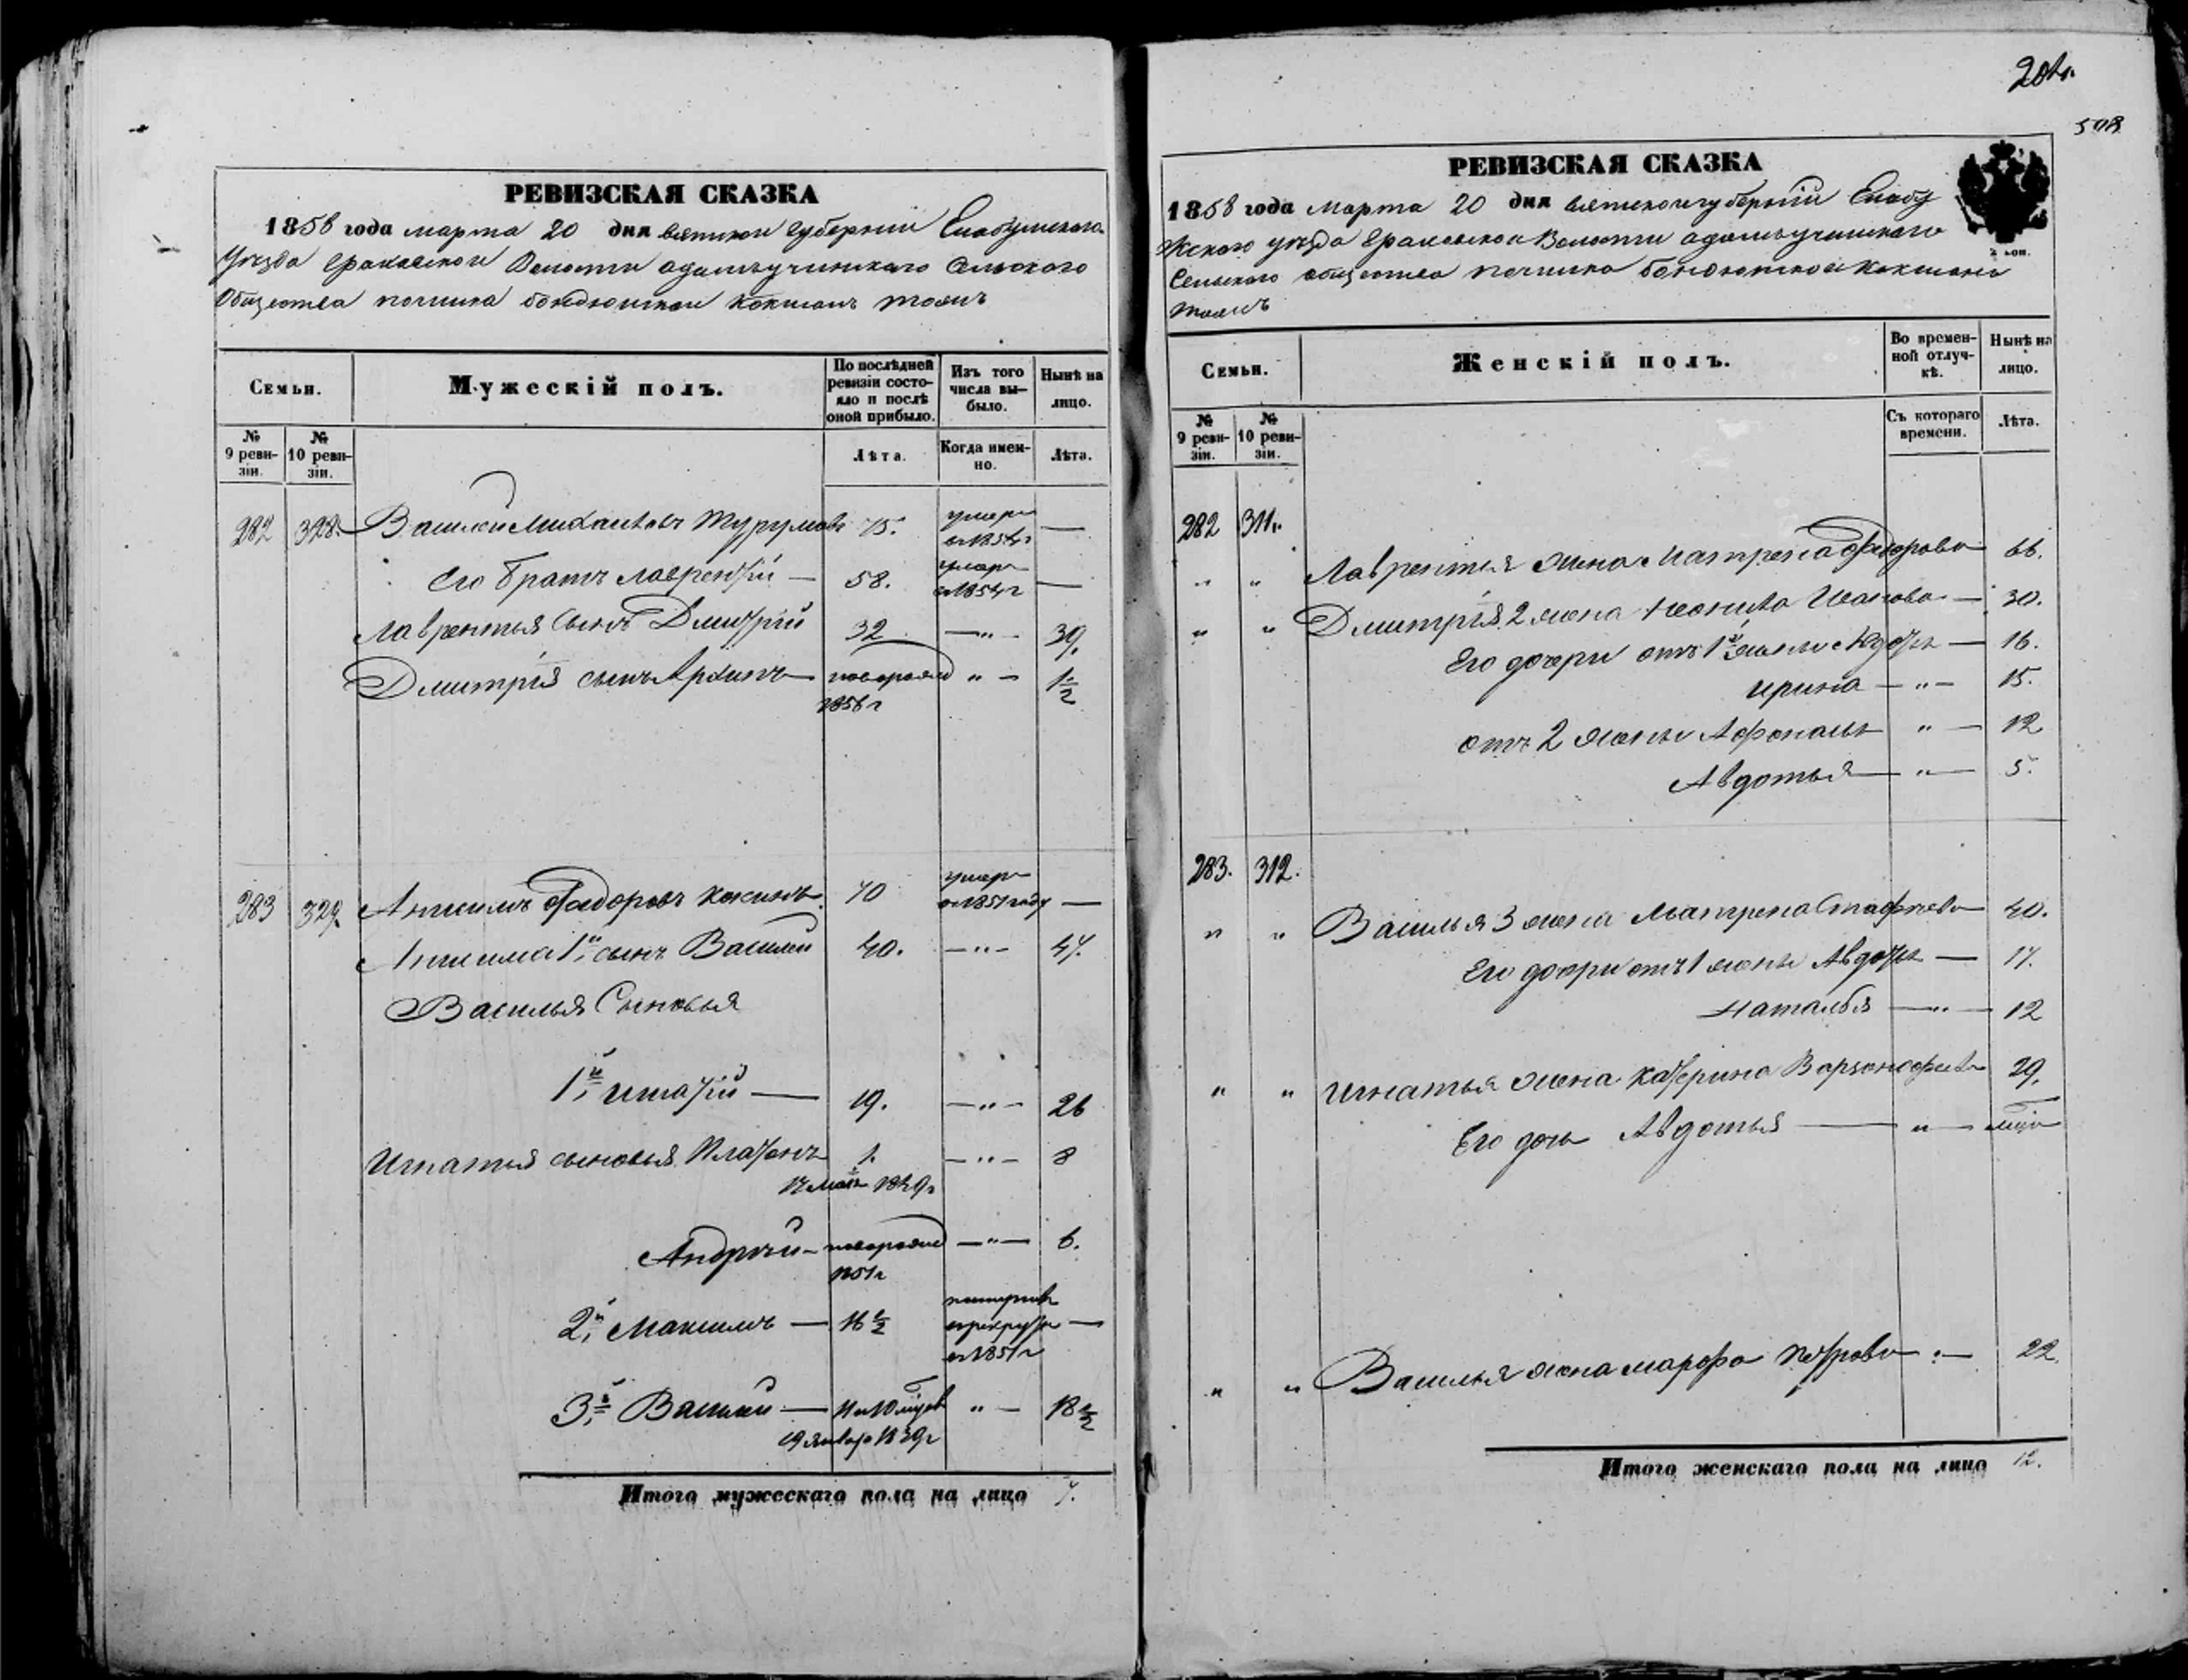 201.
508
РЕВИЗСКАЯ СКАЗКА
1858 года марта 20 дня вятской губернии Елабужскаго
Уѣзда Граховской Волости адамъучинскаго Сельскаго
Общества починка бондюжской Кокшанъ
Семьи.
Мужескій полъ.
По послѣдней ревизіи состояло и послѣ оной прибыло.
Изъ того числа выбыло.
Нынѣ на лицо.
№ 9 ревизіи.
№ 10 ревизіи.
Лѣта.
Когда именно.
Лѣта.
282 328. Василей Михайловъ 75. умеръ в 1854 г —
Его братъ Лаврентій — 58. умеръ в 1854 г —
Лаврентья Сынъ Дмитрій 32 — " — 39.
Дмитрія сынъ Архипъ — новорожд " — 1 1/2
1856 г
283 329. Анисимъ Федоровъ 70 умеръ в 1851 году —
Анисима 1й сынъ Василей 40. — " — 47.
Василья Сыновья
1й Игнатій — 19. — " — 26
Игнатья сыновья Платонъ 1. — " — 8
1849 г
Андрей — новорожд — " — 6.
1851 г
2й Максимъ — 16 1/2 в рекруты в 1851 г —
3й Василей — 11 и 10 мѣсяц " — 18 1/2
Итого мужескаго пола на лицо 7.
РЕВИЗСКАЯ СКАЗКА
1858 года Марта 20 дня вятской губерніи Елабу
жского уѣзда Граховской Волости адамъучинскаго
Сельскаго общества починка бондюжской Кокшанъ
Семьи.
Женскій полъ.
Во временной отлучкѣ.
Нынѣ на лицо.
№ 9 ревизіи.
№ 10 ревизіи.
Съ котораго времени.
Лѣта.
282 311.
" " Лаврентья жена Матрена Федорова 66.
" " Дмитрія 2 жена Иванова — 30.
Его дочери отъ 1й жены — 16.
Ирина — " — 15.
отъ 2 жены " — 12
Авдотья — " — 5.
283. 312.
" " Василья 3 жена Матрена 40.
Его дочери отъ 1 жены — 17.
Наталья — " — 12
" " Игнатья жена Катерина 29.
Его дочь Авдотья — " —
" " Василья жена Марфа Петрова " — 22.
Итого женскаго пола на лицо 12.